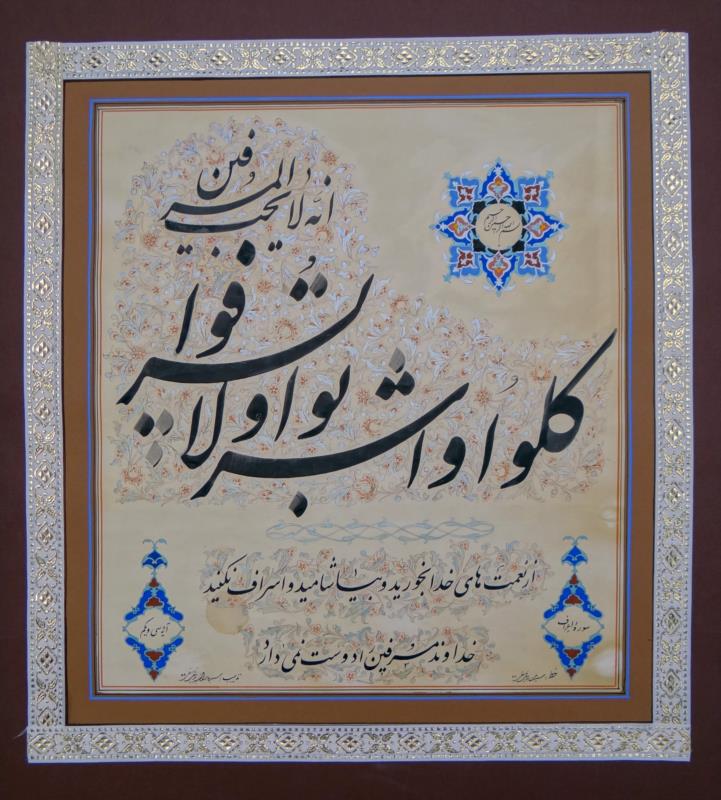 بسم الله الرحمن الرحیم
کلوا واشربوا ولا تسرفوا
انه لا یحب المسرفین
از نعمت های خدا بخورید و بیاشامید و اسراف نکنید
خداوند مسرفین را دوست نمی دارد
سوره اعراف
آیه سی و یکم
خط
تذهیب